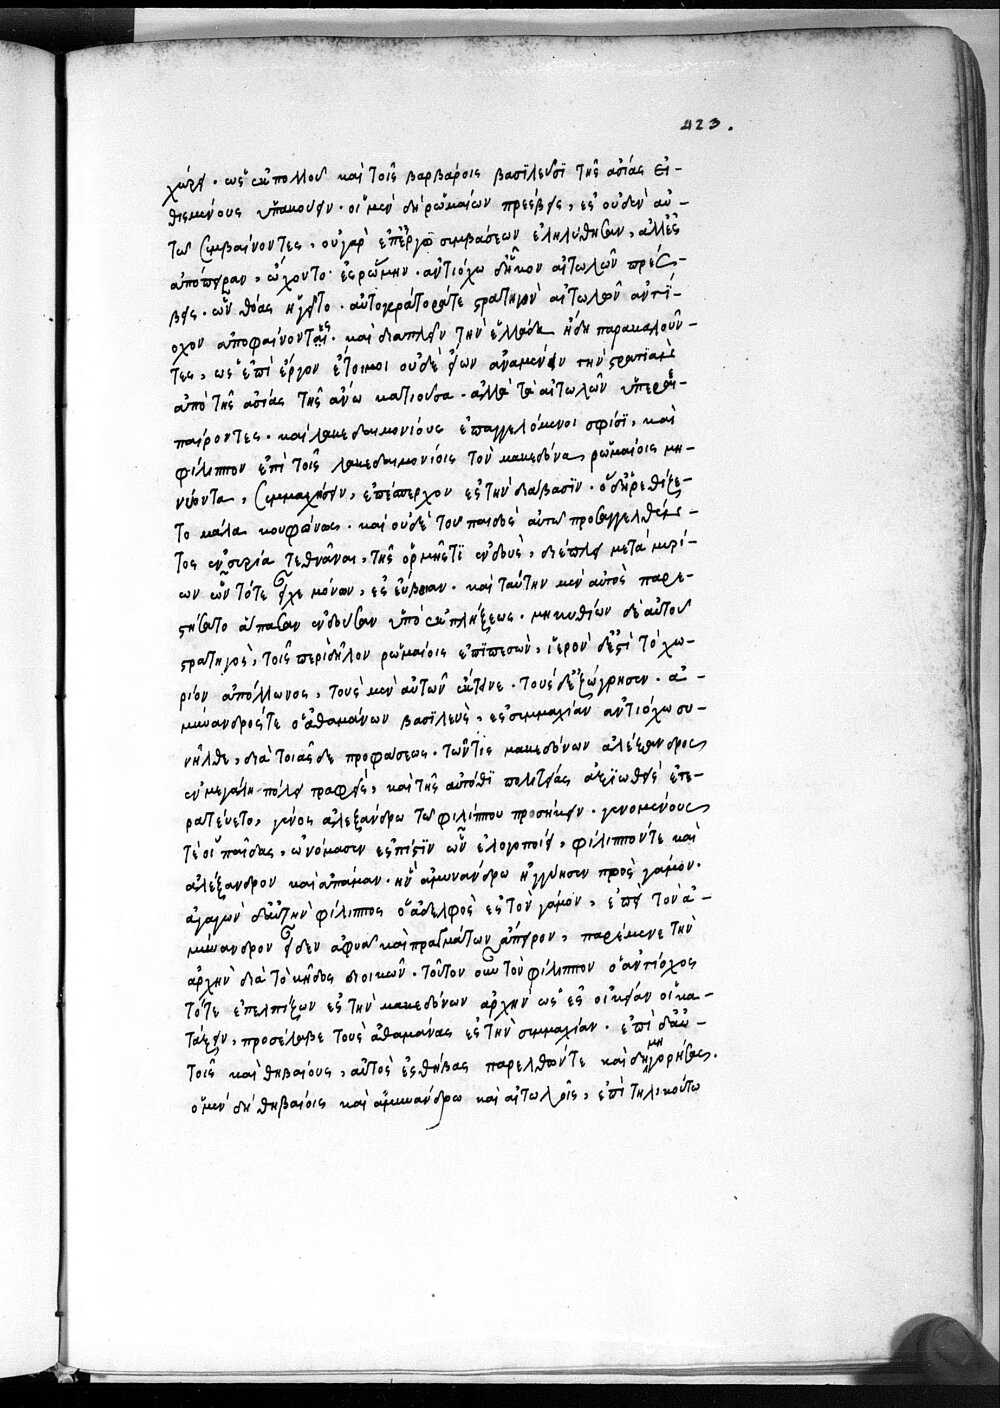 423.
χώρᾳ. ὡς ἐκ πολλοῦ καὶ τοῖς βαρβάροις βασιλεῦσι τῆς ἀσίας εἰ-
θισμένους ὑπακούειν. οἱ μὲν δὴ ῥωμαίων πρέσβεις, ἐς οὐδὲν αὐ-
τῷ συμβαίνοντες, οὐ γὰρ ἐπ' ἔργῳ συμβάσεων ἐληλύθεσαν, ἀλλ' ἐς
ἀπόπειραν, ᾤχοντο ἐς ῥώμην. ἀντιόχῳ δ' ἧκον αἰτωλῶν πρέσ-
βεις. ὧν θόας ἡγεῖτο. αὐτοκράτορά τε στρατηγὸν αἰτωλῶν ἀντί-
οχον ἀποφαίνοντες. καὶ διαπλεῖν ἐς τὴν ἑλλάδα ἤδη παρακαλοῦν-
τες, ὡς ἐπὶ ἔργον ἕτοιμον οὐδὲ εἴων ἀναμένειν τὴν στρατιὰν
ἀπὸ τῆς ἀσίας τῆς ἄνω κατιοῦσαν. ἀλλὰ τὰ αἰτωλῶν ὑπερε-
παίροντες. καὶ λακεδαιμονίους ἐπαγγελόμενοι σφίσι, καὶ
φίλιππον ἐπὶ τοῖς λακεδαιμονίοις τὸν μακεδόνα, ῥωμαίοις μη-
νίοντα, συμμαχήσειν, ἐπέσπερχον ἐς τὴν διάβασιν. ὁ δ' ἠρεθίζε-
το μάλα κουφόνως. καὶ οὐδὲ τοῦ παιδὸς αὐτῷ προσαγγελθέν-
τος ἐν συρίᾳ τεθνάναι, τῆς ὁρμῆς τι ἐνδοὺς, διέπλει μετὰ μυρί-
ων ὧν τότε εἶχε μόνων, ἐς εὔβοιαν. καὶ ταύτην μὲν αὐτὸς παρε-
στήσατο ἅπασαν ἐνδοῦσαν ὑπὸ ἐκπλήξεως. μικυθίων δὲ αὐτοῦ
στρατηγὸς, τοῖς περὶ δῆλον ῥωμαίοις ἐπιπεσὼν, ἱερὸν δ' ἐστὶ τὸ χω-
ρίον ἀπόλλωνος, τοὺς μὲν αὐτῶν ἔκτεινε. τοὺς δ' ἐξώγρησεν. ἀ-
μύνανδρός τε ὁ ἀθαμάνων βασιλεὺς, ἐς συμμαχίαν ἀντιόχῳ συ-
νῆλθε, διὰ τοιᾶσδε προφάσεως. τῶν τις μακεδόνων ἀλέξανδρος
ἐν μεγάλῃ πόλει τραφεὶς, καὶ τῆς αὐτόθι πολιτείας ἀξιωθεὶς ἐτε-
ρατεύετο, γένος ἀλεξάνδρῳ τῷ φιλίππου προσήκειν. γενομένους
τέ οἱ παῖδας, ὠνόμασεν ἐς πίστιν ὧν ἐλογοποίει, φίλιππόν τε καὶ
ἀλέξανδρον καὶ ἀπάμαν. ἣν ἀμυνάνδρῳ ἠγγύησεν πρὸς γάμον.
ἀγαγὼν δ' αὐτὴν φίλιππος ὁ ἀδελφὸς ἐς τὸν γάμον, ἐπεὶ τὸν ἀ-
μύνανδρον εἶδεν ἀφυᾶ καὶ πραγμάτων ἄπειρον, παρέμενε τὴν
ἀρχὴν διὰ τὸ κῆδος διοικῶν. τοῦτον οὖν τὸν φίλιππον ὁ ἀντίοχος
τότε ἐπελπίζων ἐς τὴν μακεδόνων ἀρχὴν ὡς ἐς οἰκείαν οἱ κα-
τάξειν, προσέλαβε τοὺς ἀθαμάνας ἐς τὴν συμμαχίαν. ἐπὶ δ' αὐ-
τοῖς καὶ θηβαίους, αὐτὸς ἐς θήβας παρελθών τε καὶ δημηγορήσας.
ὁ μὲν δὴ θηβαίοις καὶ ἀμυνάνδρῳ καὶ αἰτωλοῖς, ἐπὶ τηλικούτῳ